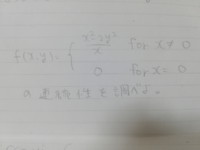 f(x,y)= { x²+y²/x for x≠0
0 for x=0
の連続性を調べよ。